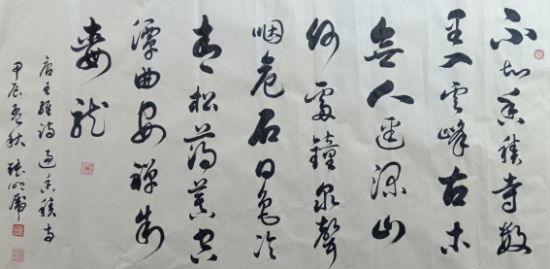 不知香積寺數
里入雲峰古木
無人逕深山
何處鐘泉聲
咽危石日色冷
青松薄暮空
潭曲安禪制
毒龍
唐王維詩過香積寺
甲辰孟秋